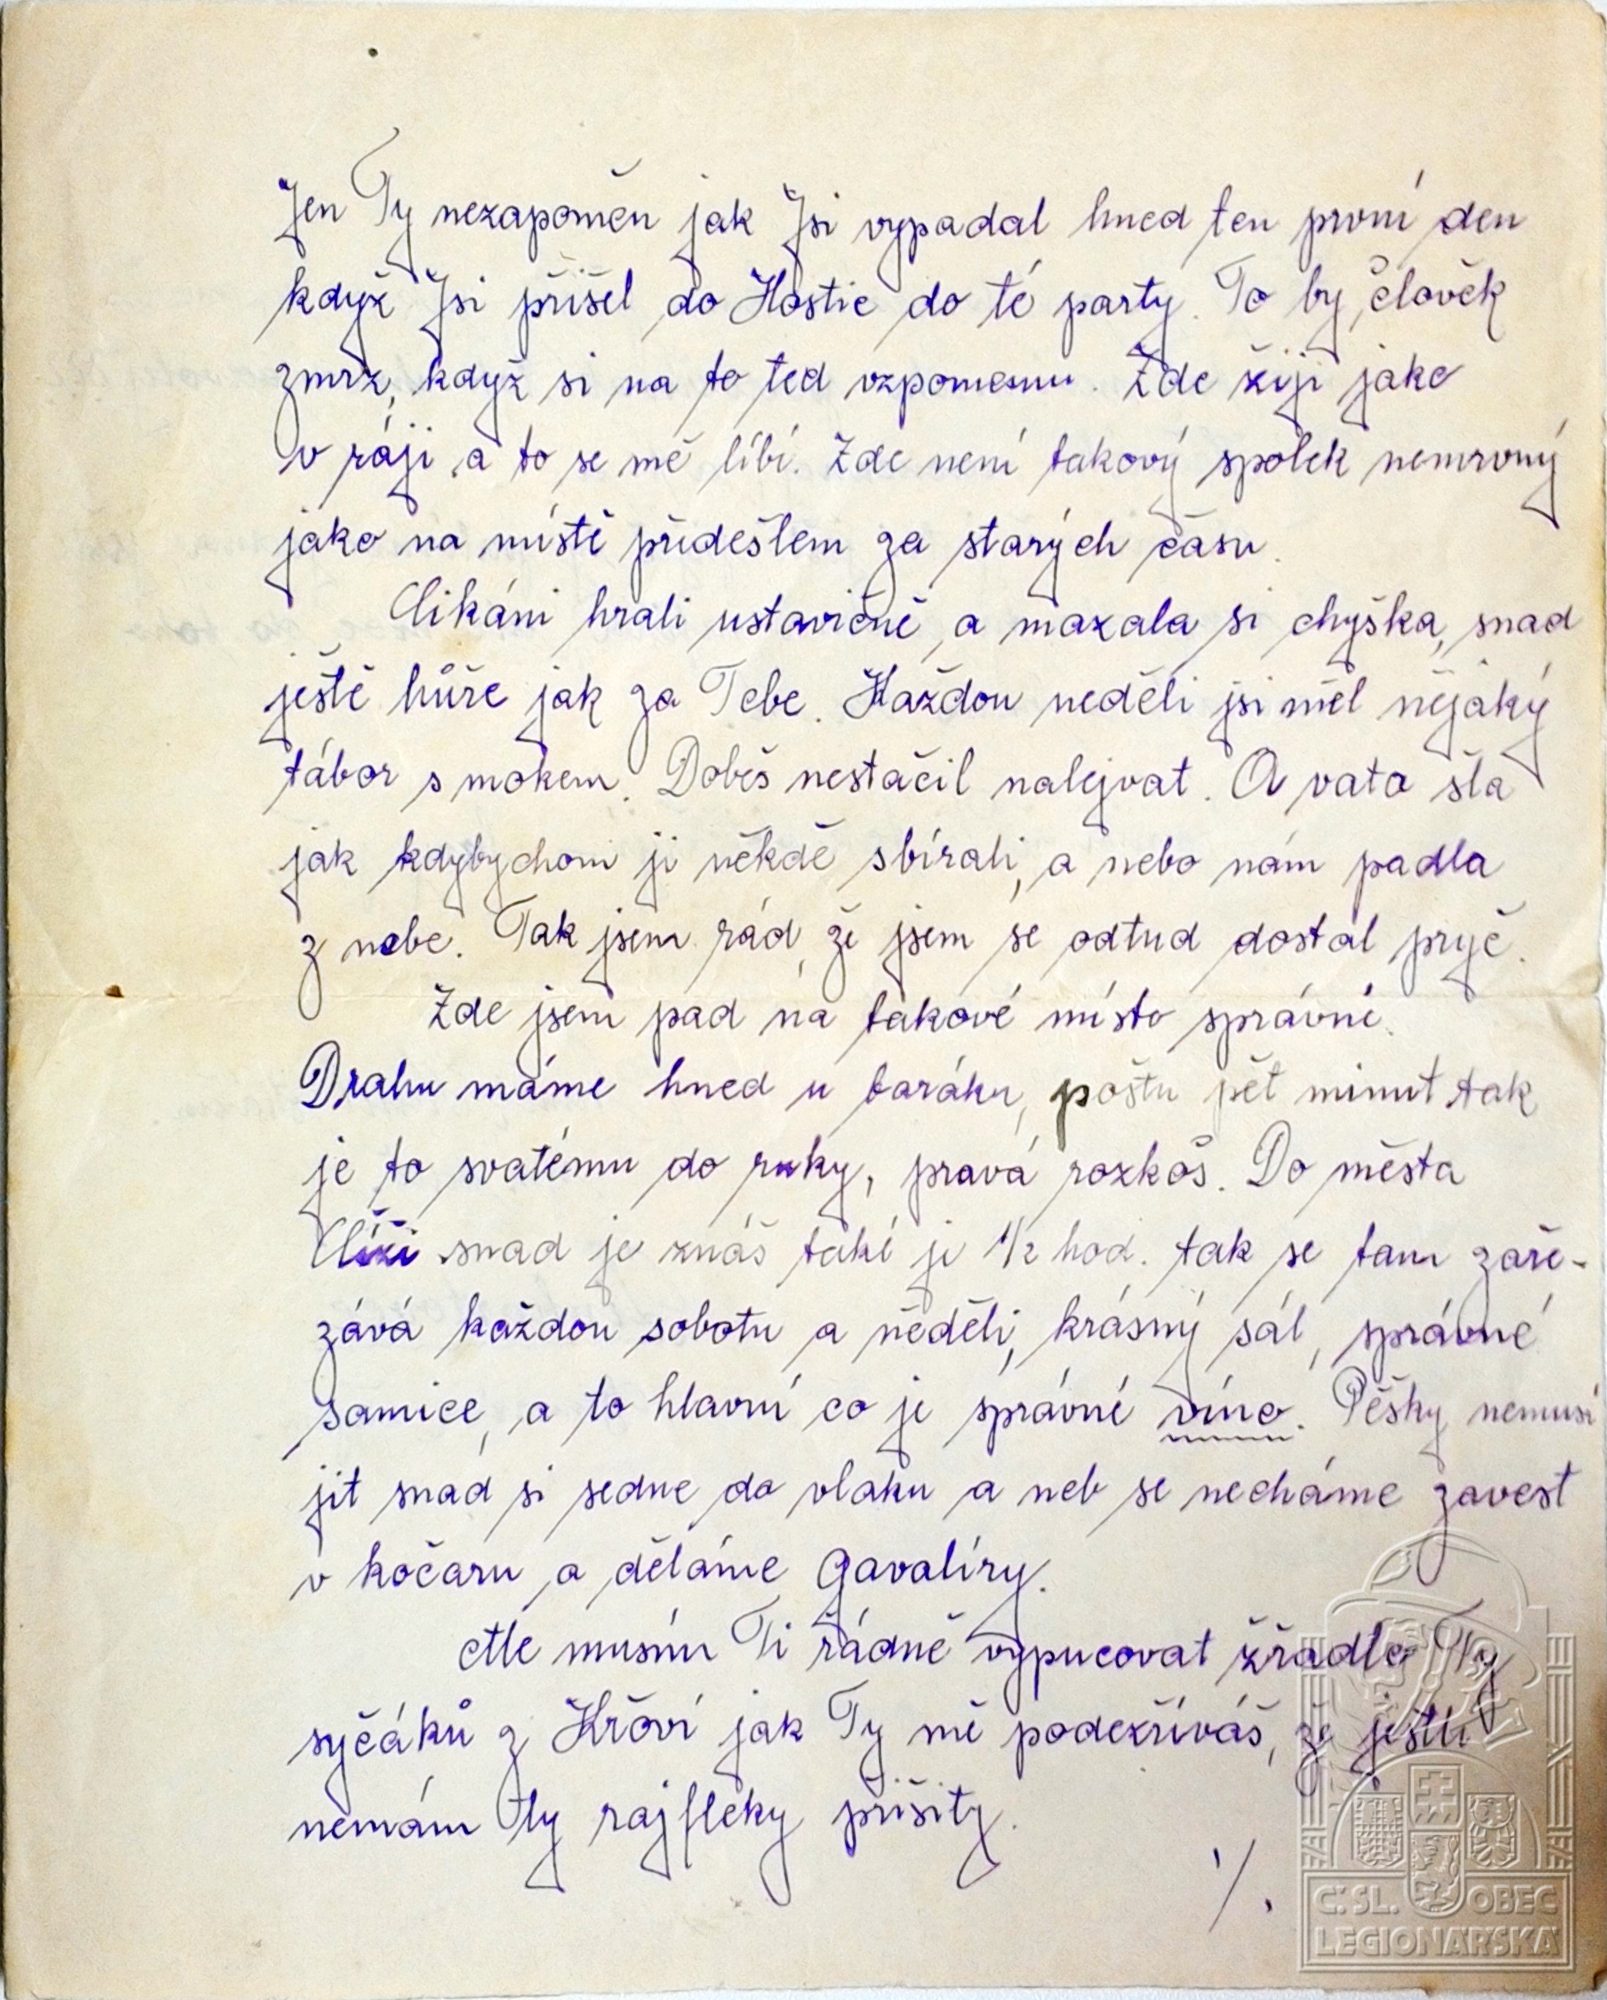 Jen Ty nezapoměn jak Jsi vypadal hned ten první den
když Jsi přišel do Hostic do té party. To by člověk
zmrz, když si na to ted vzpomenu. Zde žiji jako
v ráji a to se mě líbí. Zde není takový spolek nemrvný
jako na místě předešlem za starých času.
Cikáni hrali ustavičně, a mazala si chyška, snad
ještě hůře jak za Tebe. Každou neděli jsi měl nějaký
tábor s mokem. Dobeš nestačil nalejvat. A vata šla
jak kdybychom ji někdě sbírali, a nebo nám padla
z nebe. Tak jsem rád, že jsem se odtud dostal pryč.
Zde jsem pad na takové místo správné.
Drahu máme hned u baráku, poštu pět minut tak
je to svatému do ruky, pravá rozkoš. Do města
snad je znáš také je 1/2 hod. tak se tam zaře-
zává každou sobotu a neděli, krásný sál, správné
samice, a to hlavní co je správné víno. Pěšky nemusí
jit snad si sedne do vlaku a neb se necháme zavest
v kočaru a děláme gavalíry.
Ale musím Ti řádně vypucovat žradlo Ty
syčáků z Křoví jak Ty mě podezříváš, že jestli
nemám ty rajfleky přišity.
./.
Č.SL. OBEC
LEGIONÁŘSKÁ